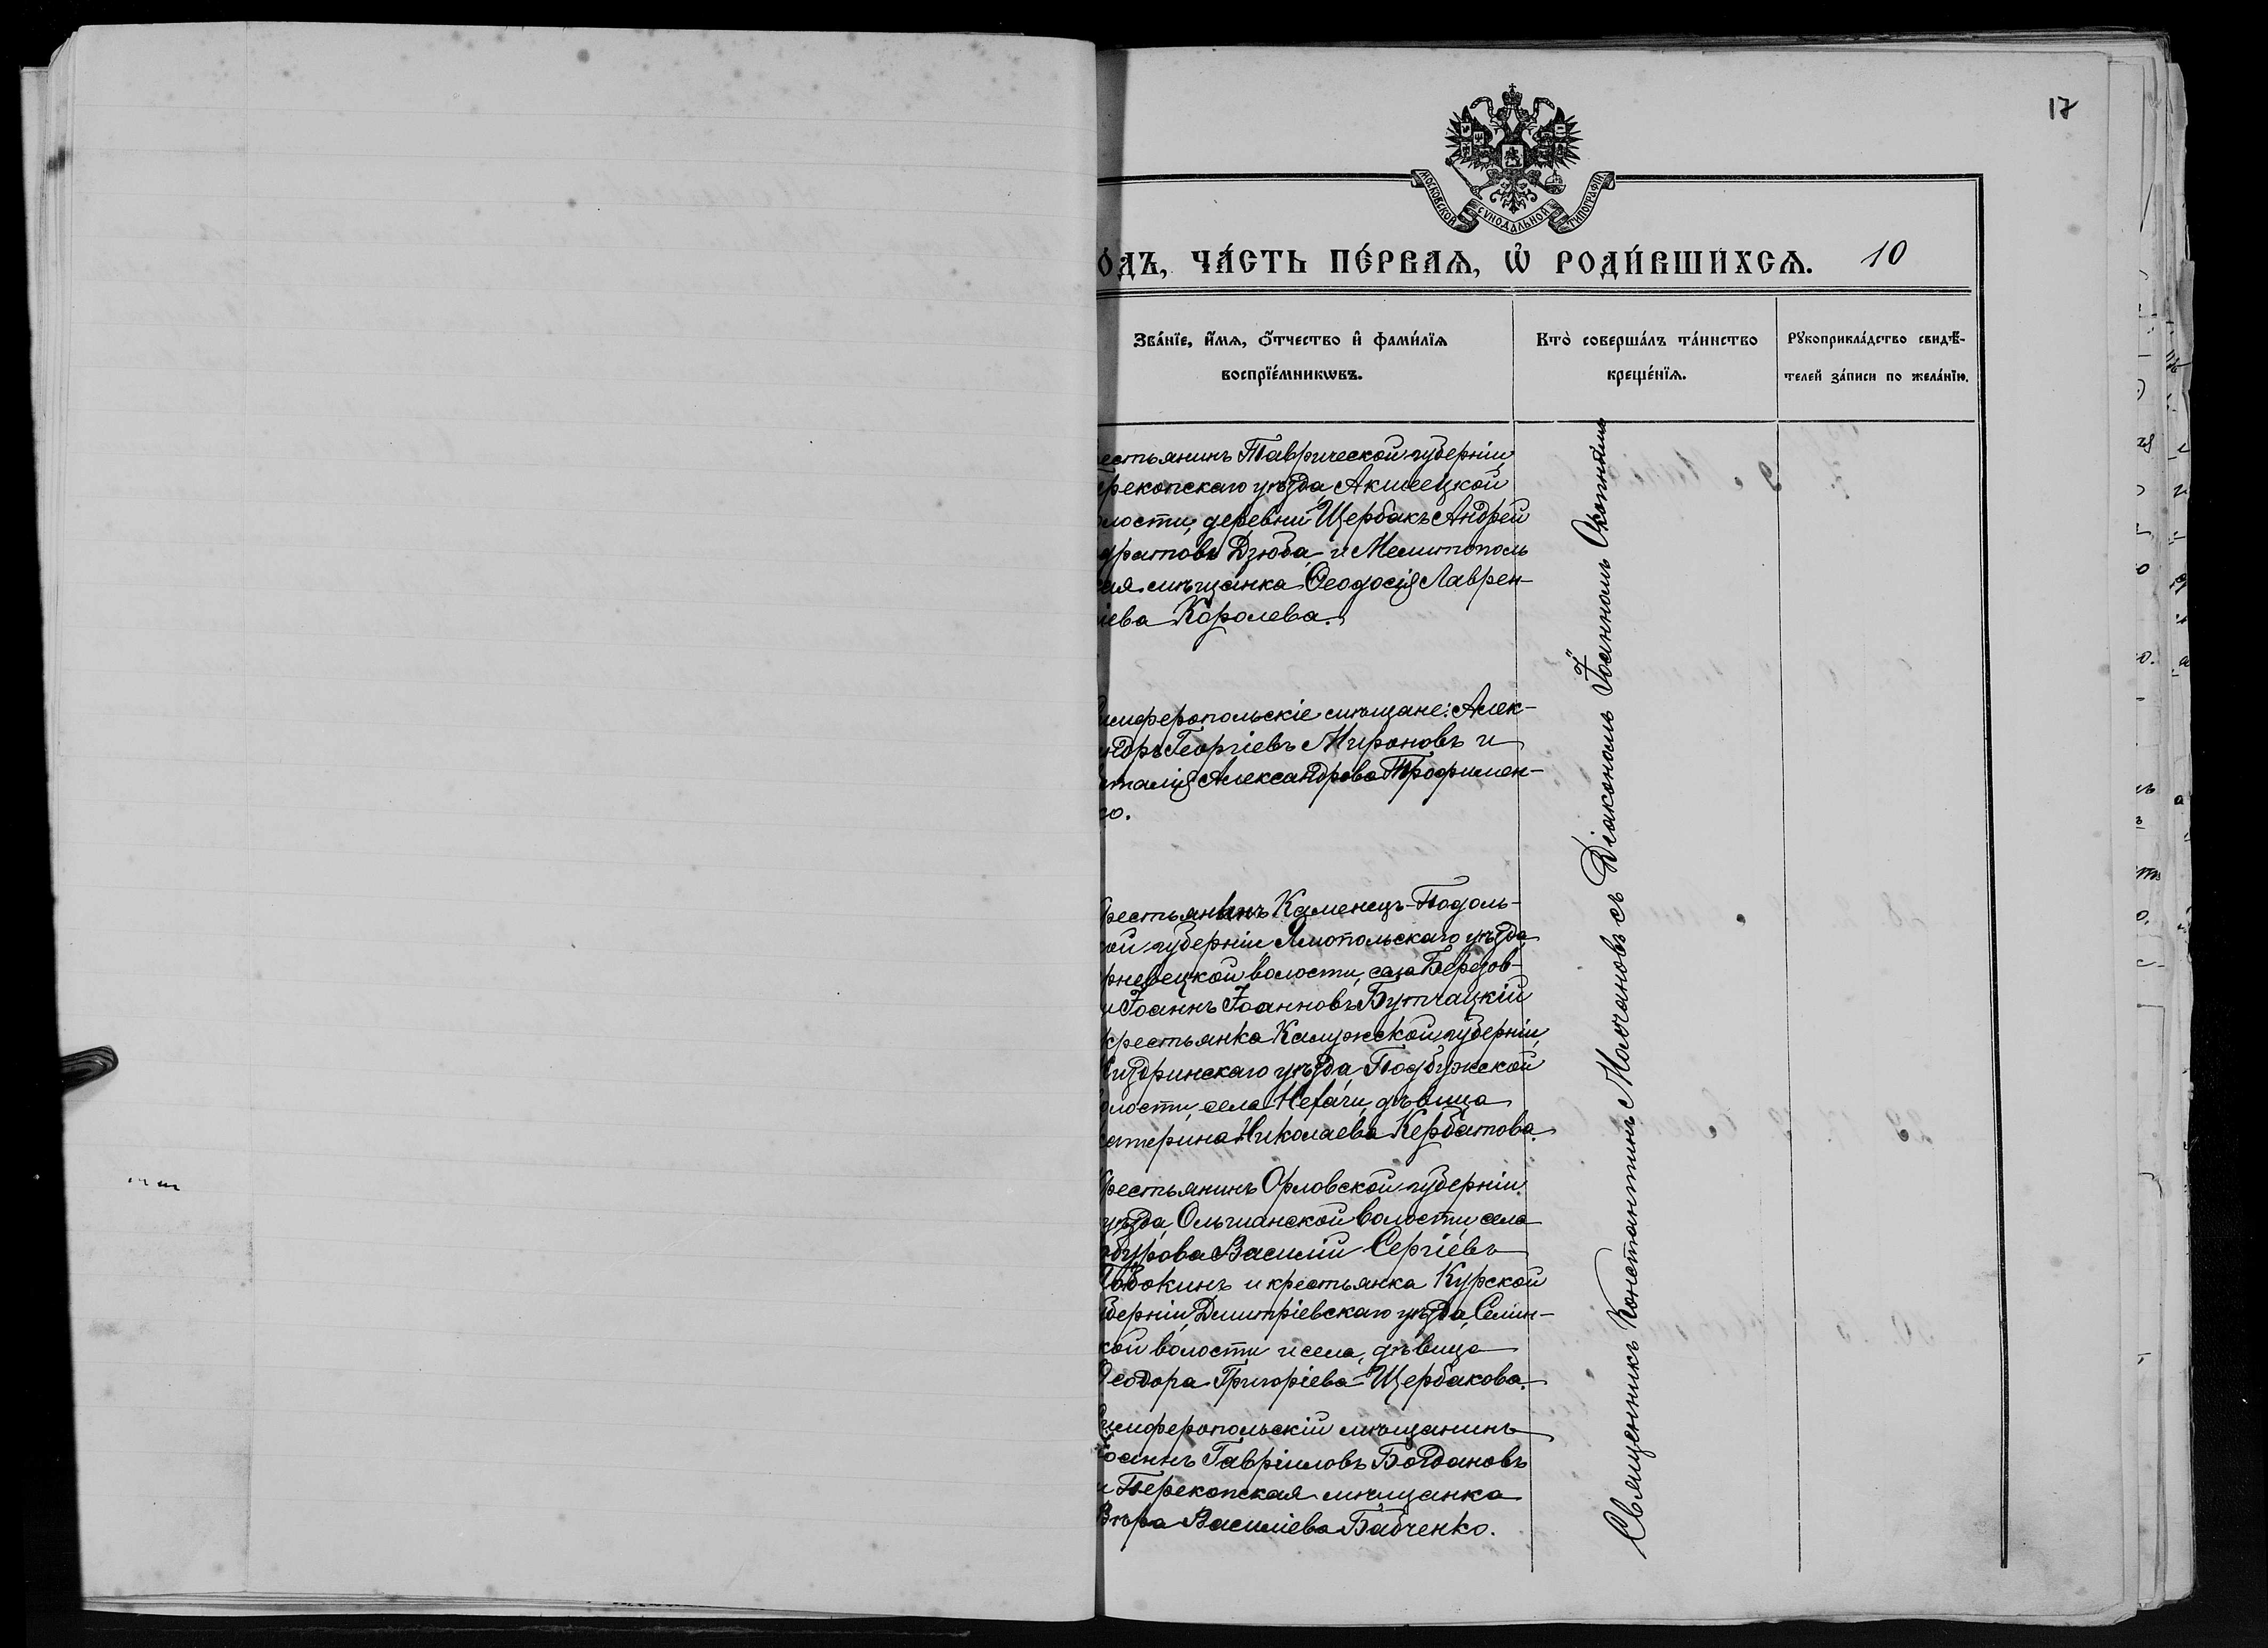 17
МОСКОВСКОЙ СѴНОДАЛЬНОЙ ТИПОГРАФІИ
О́ДЪ, ЧА́СТЬ ПЕ́РВАѦ, Ѡ҆ РОДИ́ВШИХСѦ. 10
Зва́нїе, и҆́мѧ, ѻ҆́тчество и҆ фами́лїѧ
воспрїе́мникѡвъ.
Кто̀ соверша́лъ та́инство
креще́нїѧ.
Рꙋкоприкла́дство свидѣ́-
телей за́писи по жела́нїю.
естьянинъ Таврической губерніи,
рекопскаго уѣзда, Акшеецкой
лости, деревни Щербакъ Андрей
дратовъ Дзюба, и Мелитополь
ая мѣщанка Ѳеодосія Лаврен-
іева Королева.
имферопольскіе мѣщане: Алек-
ндръ Георгіевъ Мироновъ и
талія Александрова Трофимен-
ко.
рестьянинъ Каменецъ-Подоль-
кой губерніи Ямпольскаго уѣзда
рневецкой волости, села Березов-
и Іоаннъ Іоанновъ Бутчацкій
крестьянка Калужской губерніи,
Жиздринскаго уѣзда, Подбужской
олости, села дѣвица
катерина Николаева Кербатова.
рестьянинъ Орловской губерніи
уѣзда, Ольшанской волости села
Василій Сергіевъ
и крестьянка Курской
уберніи Димитріевскаго уѣзда, Селин-
кой волости и села, дѣвица
Ѳеодора Григоріева Щербакова.
имферопольскій мѣщанинъ
Іоаннъ Гавріиловъ Богдановъ
и Перекопская мѣщанка
Вѣра Василіева Бабченко.
Священникъ Константинъ Молчановъ съ Діакономъ Іоанномъ